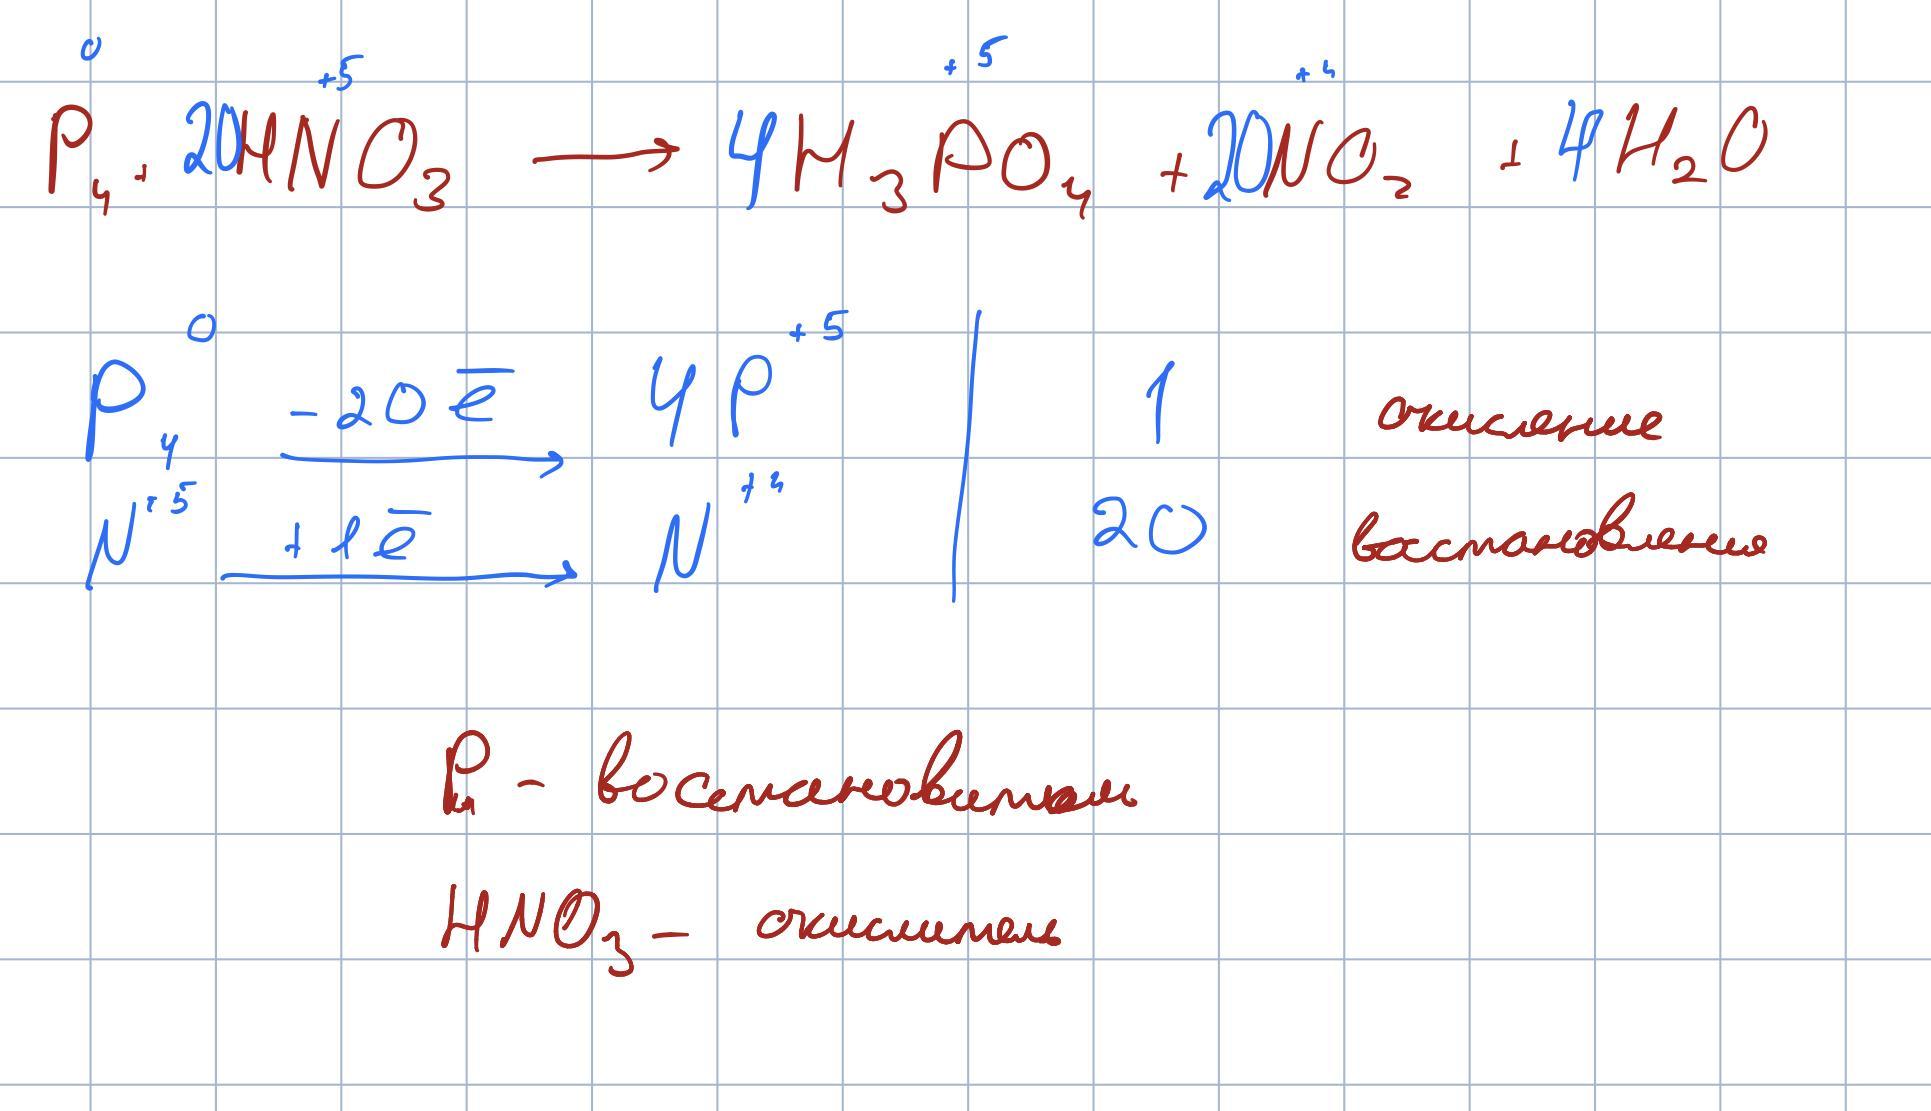 P₄⁰ + 20HN⁺⁵O₃ → 4H₃P⁺⁵O₄ + 20N⁺⁴O₂ + 4H₂O
P₄⁰ -20e̅ → 4P⁺⁵ | 1 окисление
N⁺⁵ +1e̅ → N⁺⁴ | 20 востановление
P₄ - востановитель
HNO₃ - окислитель